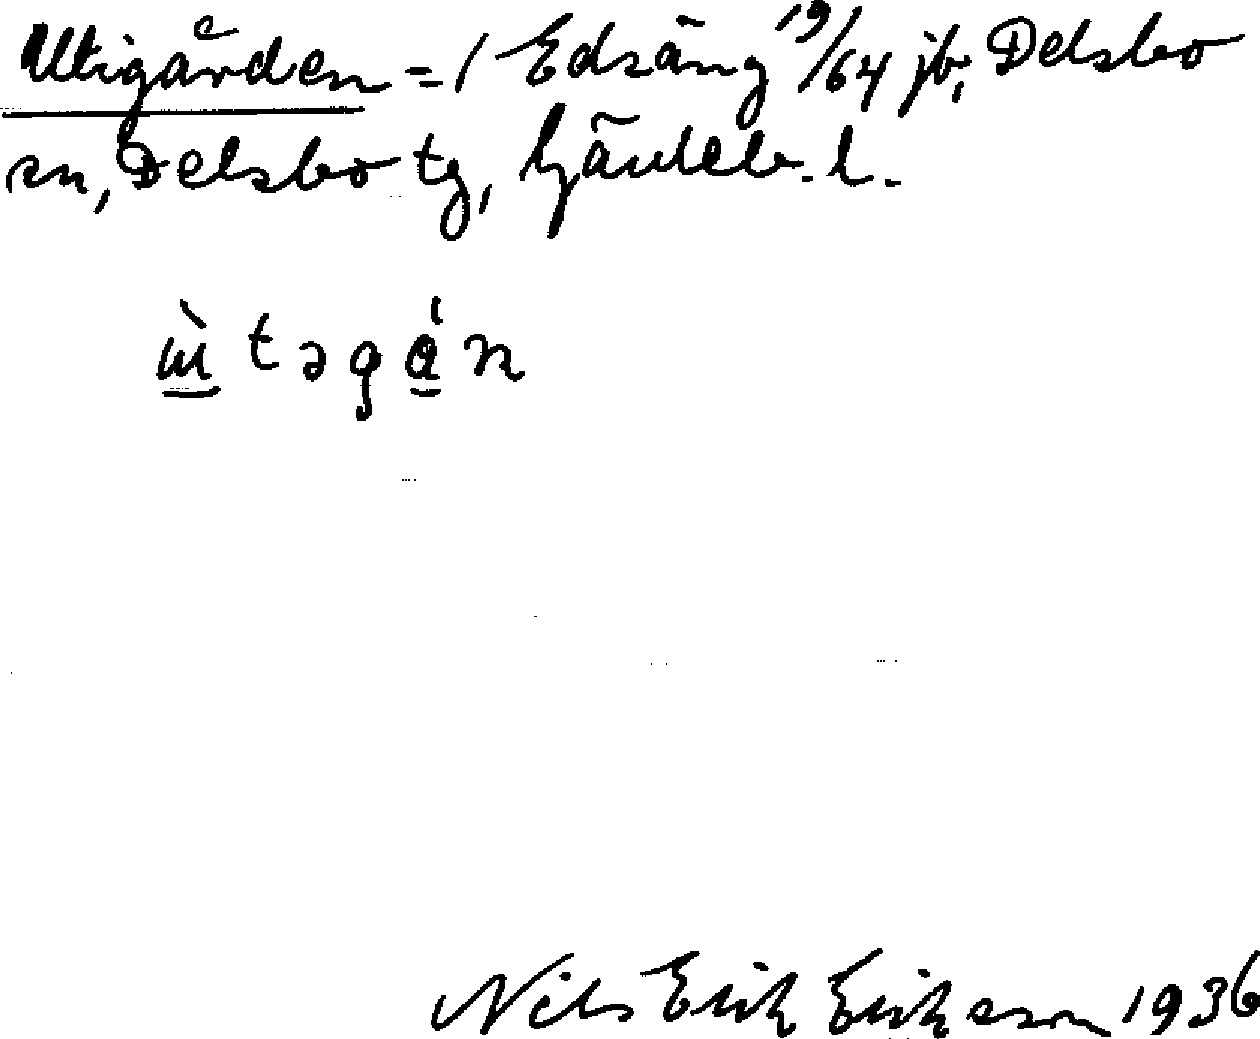 Utigården = 1 Edsäng 19/64 jb, Delsbo
sn, Delsbo tg, Gävleb. l.
ù̱təgá̱n
Nils Erik Eriksson 1936